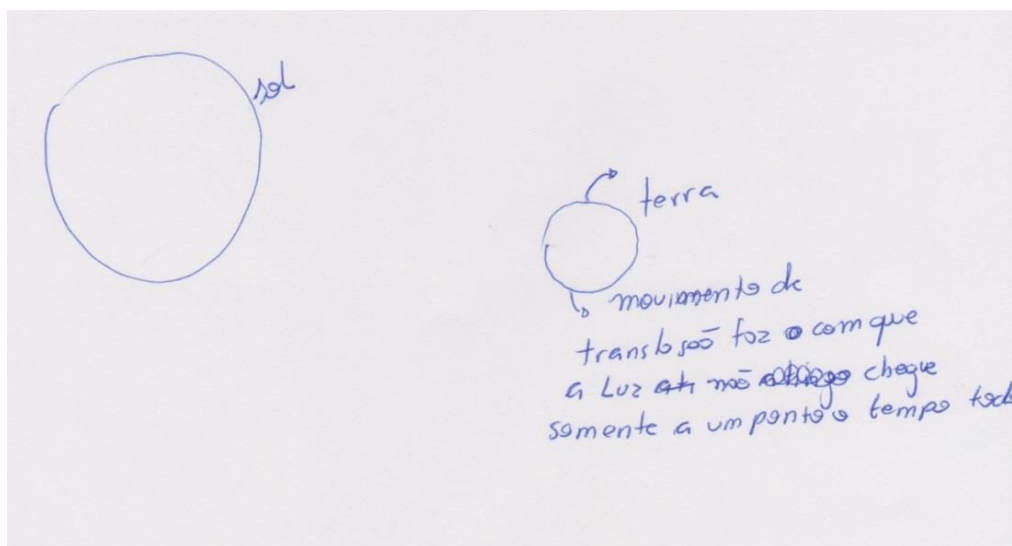 sol
terra
movimento de
translação faz o com que
a Luz não chegue
somente a um ponto o tempo todo